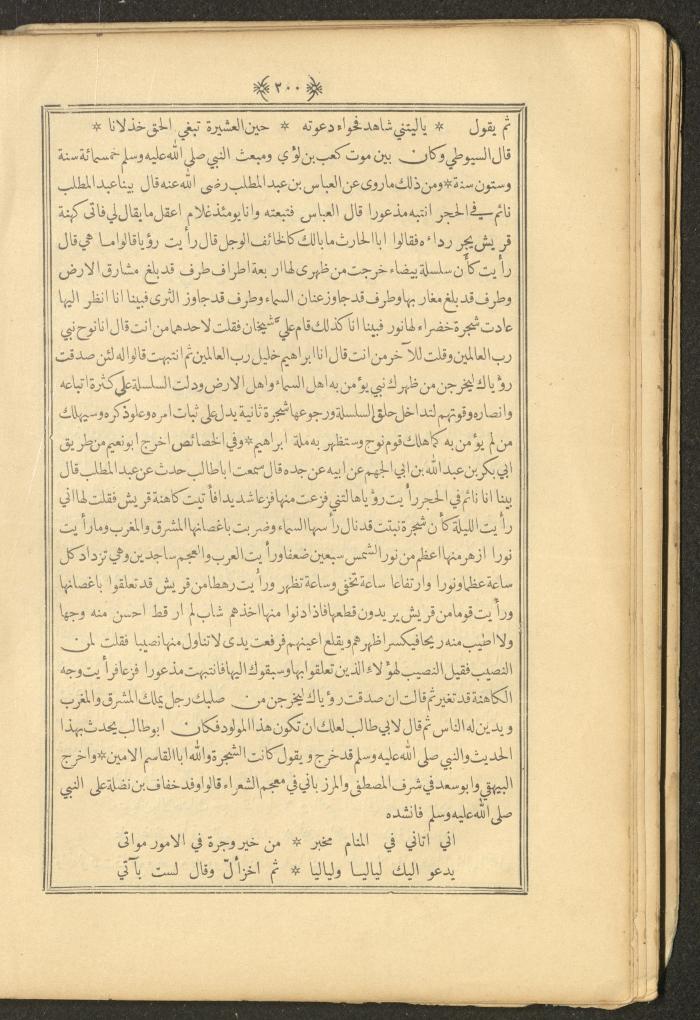 ٢٠٠
ثم يقول * ياليتني شاهد فحواء دعوته * حين العشيرة تبغي الحق خذلانا *
قال السيوطي وكان بين موت كعب بن لؤي ومبعث النبي صلى الله عليه وسلم خمسمائة سنة
وستون سنة * ومن ذلك ماروى عن العباس بن عبد المطلب رضى الله عنه قال بينا عبد المطلب
نائم في الحجر انتبه مذعورا قال العباس فتبعته وانا يومئذ غلام اعقل ما يقال لي فاتى كهنة
قريش يجر رداءه فقالوا ابا الحارث مابالك كالخائف الوجل قال رأيت رؤيا قالوا ما هي قال
رأيت كأن سلسلة بيضاء خرجت من ظهرى لها اربعة اطراف طرف قد بلغ مشارق الارض
وطرف قد بلغ مغاربها وطرف قد جاوز عنان السماء وطرف قد جاوز الثرى فبينا انا انظر اليها
عادت شجرة خضراء لها نور فبينا انا كذلك قام علي شيخان فقلت لاحدهما من انت قال انا نوح نبي
رب العالمين وقلت للآخر من انت قال انا ابراهيم خليل رب العالمين ثم انتبهت قالوا له لئن صدقت
رؤياك ليخرجن من ظهرك نبي يؤمن به اهل السماء واهل الارض ودلت السلسلة على كثرة اتباعه
وانصاره وقوتهم لتداخل حلق السلسلة ورجوعها شجرة ثانية يدل على ثبات امره وعلو ذكره وسيهلك
من لم يؤمن به كما هلك قوم نوح وستظهر به ملة ابراهيم * وفي الخصائص اخرج ابو نعيم من طريق
ابي بكر بن عبد الله بن ابي الجهم عن ابيه عن جده قال سمعت ابا طالب حدث عن عبد المطلب قال
بينا انا نائم في الحجر رأيت رؤيا هالتني فزعت منها فزعا شديدا فأتيت كاهنة قريش فقلت لها اني
رأيت الليلة كأن شجرة نبتت قد نال رأسها السماء وضربت باغصانها المشرق والمغرب وما رأيت
نورا ازهر منها اعظم من نور الشمس سبعين ضعفا ورأيت العرب والعجم ساجدين وهي تزداد كل
ساعة عظما ونورا وارتفاعا ساعة تخفى وساعة تظهر ورأيت رهطا من قريش قد تعلقوا باغصانها
ورأيت قوما من قريش يريدون قطعها فاذا دنوا منها اخذهم شاب لم ار قط احسن منه وجها
ولا اطيب منه ريحا فيكسر اظهرهم ويقلع اعينهم فرفعت يدى لاتناول منها نصيبا فقلت لمن
النصيب فقيل النصيب لهؤلاء الذين تعلقوا بها وسبقوك اليها فانتبهت مذعورا فزعا فرأيت وجه
الكاهنة قد تغير ثم قالت ان صدقت رؤياك ليخرجن من صلبك رجل يملك المشرق والمغرب
ويدين له الناس ثم قال لابي طالب لعلك ان تكون هذا المولود فكان ابو طالب يحدث بهذا
الحديث والنبي صلى الله عليه وسلم قد خرج ويقول كانت الشجرة والله ابا القاسم الامين * واخرج
البيهقي وابو سعد في شرف المصطفى والمرزباني في معجم الشعراء قالوا وفد خفاف بن نضلة على النبي
صلى الله عليه وسلم فانشده
اني اتاني في المنام مخبر * من خير وجرة في الامور مواتى
يدعو اليك لياليا ولياليا * ثم اخزألّ وقال لست بآتي